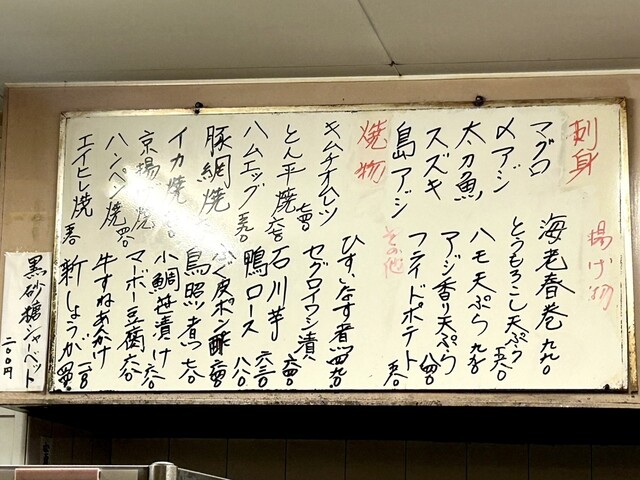 刺身
マグロ
〆アジ
太刀魚
スズキ
島アジ
焼物
キムチオムレツ
とん平焼
ハムエッグ
豚網焼
イカ焼
京揚げ焼
ハンペン焼
エイヒレ焼
揚げ物
海老春巻 九九〇
とうもろこし天ぷら 五八〇
ハモ天ぷら 九九〇
アジ香り天ぷら 八四〇
フライドポテト 五五〇
その他
ひすいなす煮 四九〇
セグロイワシ漬 六四〇
石川芋 六三〇
鴨ロース 八八〇
ふぐ皮ポン酢
鳥照り煮 七六〇
小鯛笹漬け 六八〇
マーボー豆腐 六六〇
牛すねあんかけ
新しょうが
黒砂糖シャーベット 二〇〇円